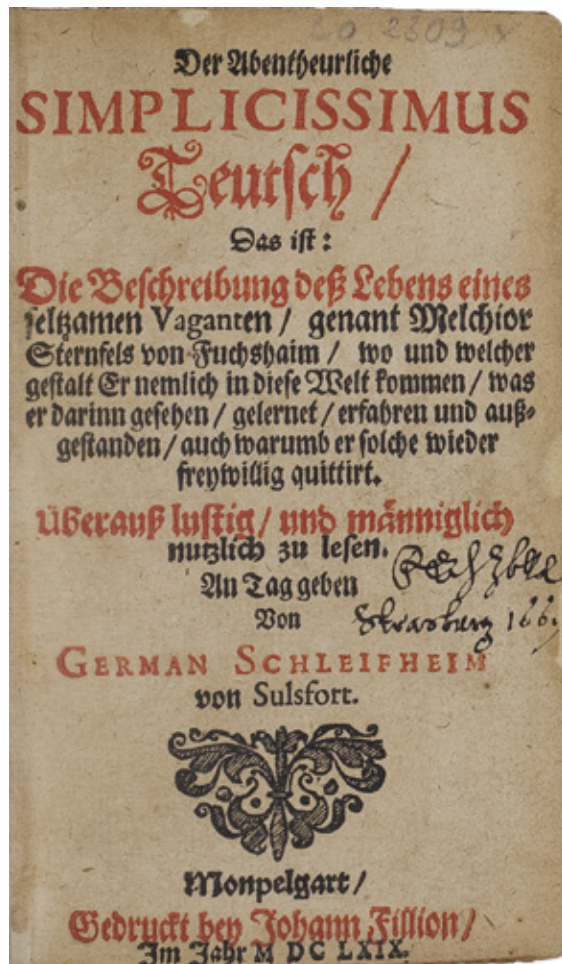 2309
Der Abentheurliche
SIMPLICISSIMUS
Teutsch /
Das ist:
Die Beschreibung deß Lebens eines
seltzamen Vaganten / genant Melchior
Sternfels von Fuchshaim / wo und welcher
gestalt Er nemlich in diese Welt kommen / was
er darinn gesehen / gelernet / erfahren und auß-
gestanden / auch warumb er solche wieder
freywillig quittirt.
Überauß lustig / und männiglich
nutzlich zu lesen.
An Tag geben
Von
Strasburg 166
GERMAN SCHLEIFHEIM
von Sulsfort.
Monpelgart /
Gedruckt bey Johann Fillion /
Im Jahr M DC LXIX.